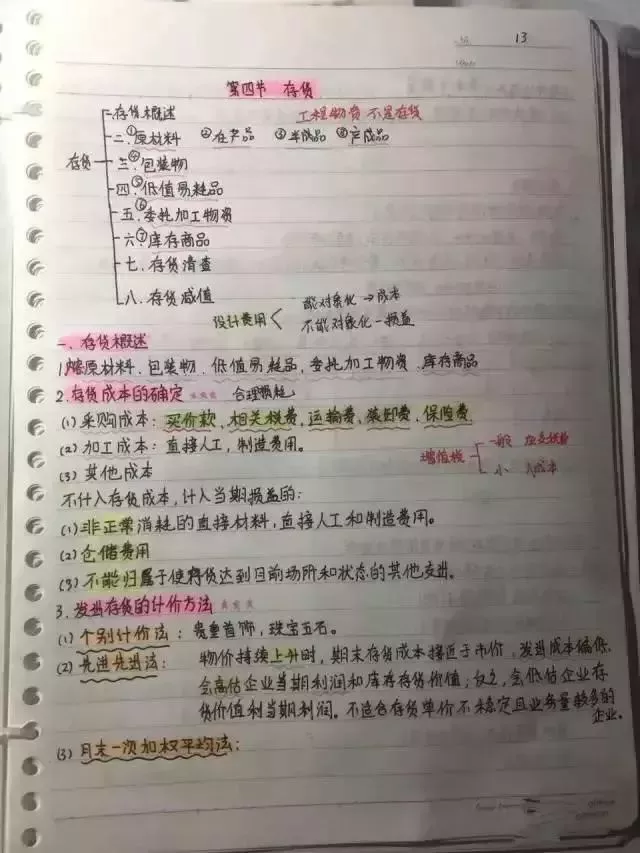 13
第四节 存货
一.存货概述 工程物资 不是存货
二.①原材料 ②在产品 ③半成品 ③产成品
存货
三.④包装物
四.⑤低值易耗品
五.⑥委托加工物资
六.⑦库存商品
七.存货清查
八.存货减值
设计费用 < 能对象化→成本
不能对象化-损益
一.存货概述
1.原材料、包装物、低值易耗品,委托加工物资、库存商品
2.存货成本的确定 *** 合理损耗
(1)采购成本:买价款,相关税费,运输费、装卸费、保险费
(2)加工成本:直接人工,制造费用。
增值税 一般
小 入成本
(3)其他成本
不计入存货成本,计入当期损益的:
(1)非正常消耗的直接材料,直接人工和制造费用。
(2)仓储费用
(3)不能归属于使存货达到目前场所和状态的其他支出。
3.发出存货的计价方法 ***
(1)个别计价法:贵重首饰,珠宝玉石。
(2)先进先出法: 物价持续上升时,期末存货成本接近于市价,发出成本偏低,
会高估企业当期利润和库存存货价值;反之,会低估企业存
货价值和当期利润。不适合存货单价不稳定且业务量较多的
企业。
(3)月末一次加权平均法: